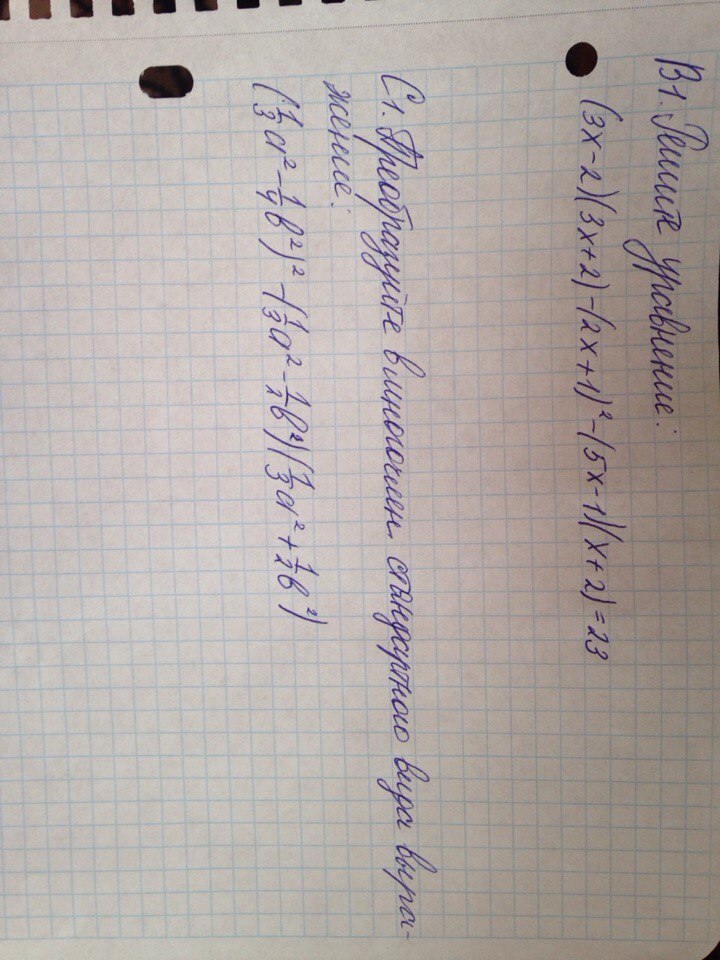 В1. Решите уравнение:
(3х-2)(3х+2)-(2х+1)²-(5х-1)(х+2)=23
С1. Преобразуйте в многочлен стандартного вида выра-
жение:
(1/3a²-1/4b²)²-(1/3a²-1/2b²)(1/3a²+1/2b²)